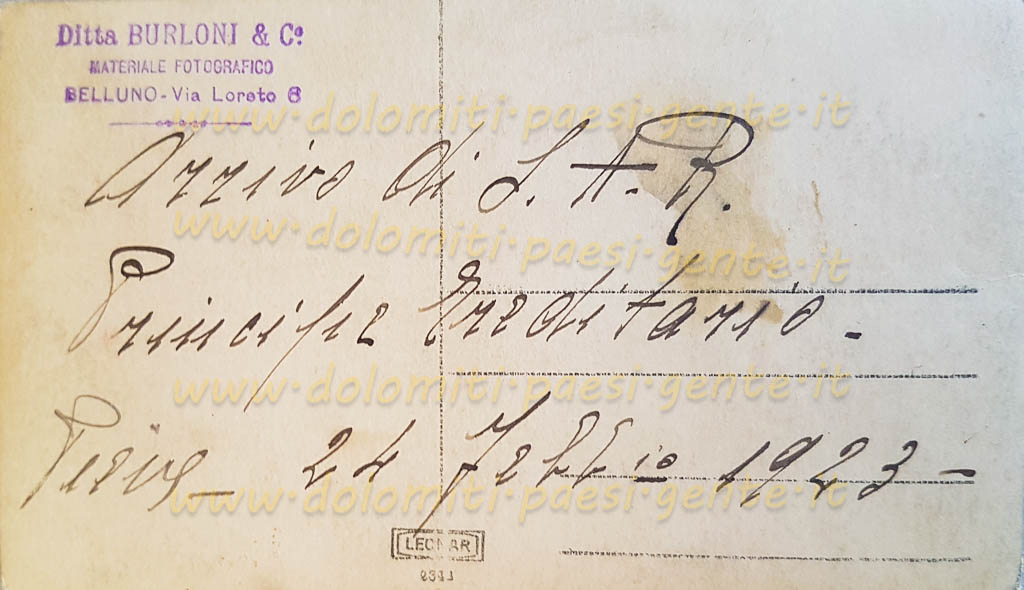 Ditta BURLONI & Cº
MATERIALE FOTOGRAFICO
BELLUNO - Via Loreto 6
www.dolomiti.paesi.gente.it
Arrivo di S. A. R.
www.dolomiti.paesi.gente.it
Principe Ereditario -
www.dolomiti.paesi.gente.it
Pieve - 24 febb io 1923 -
www.dolomiti.paesi.gente.it
LEONAR